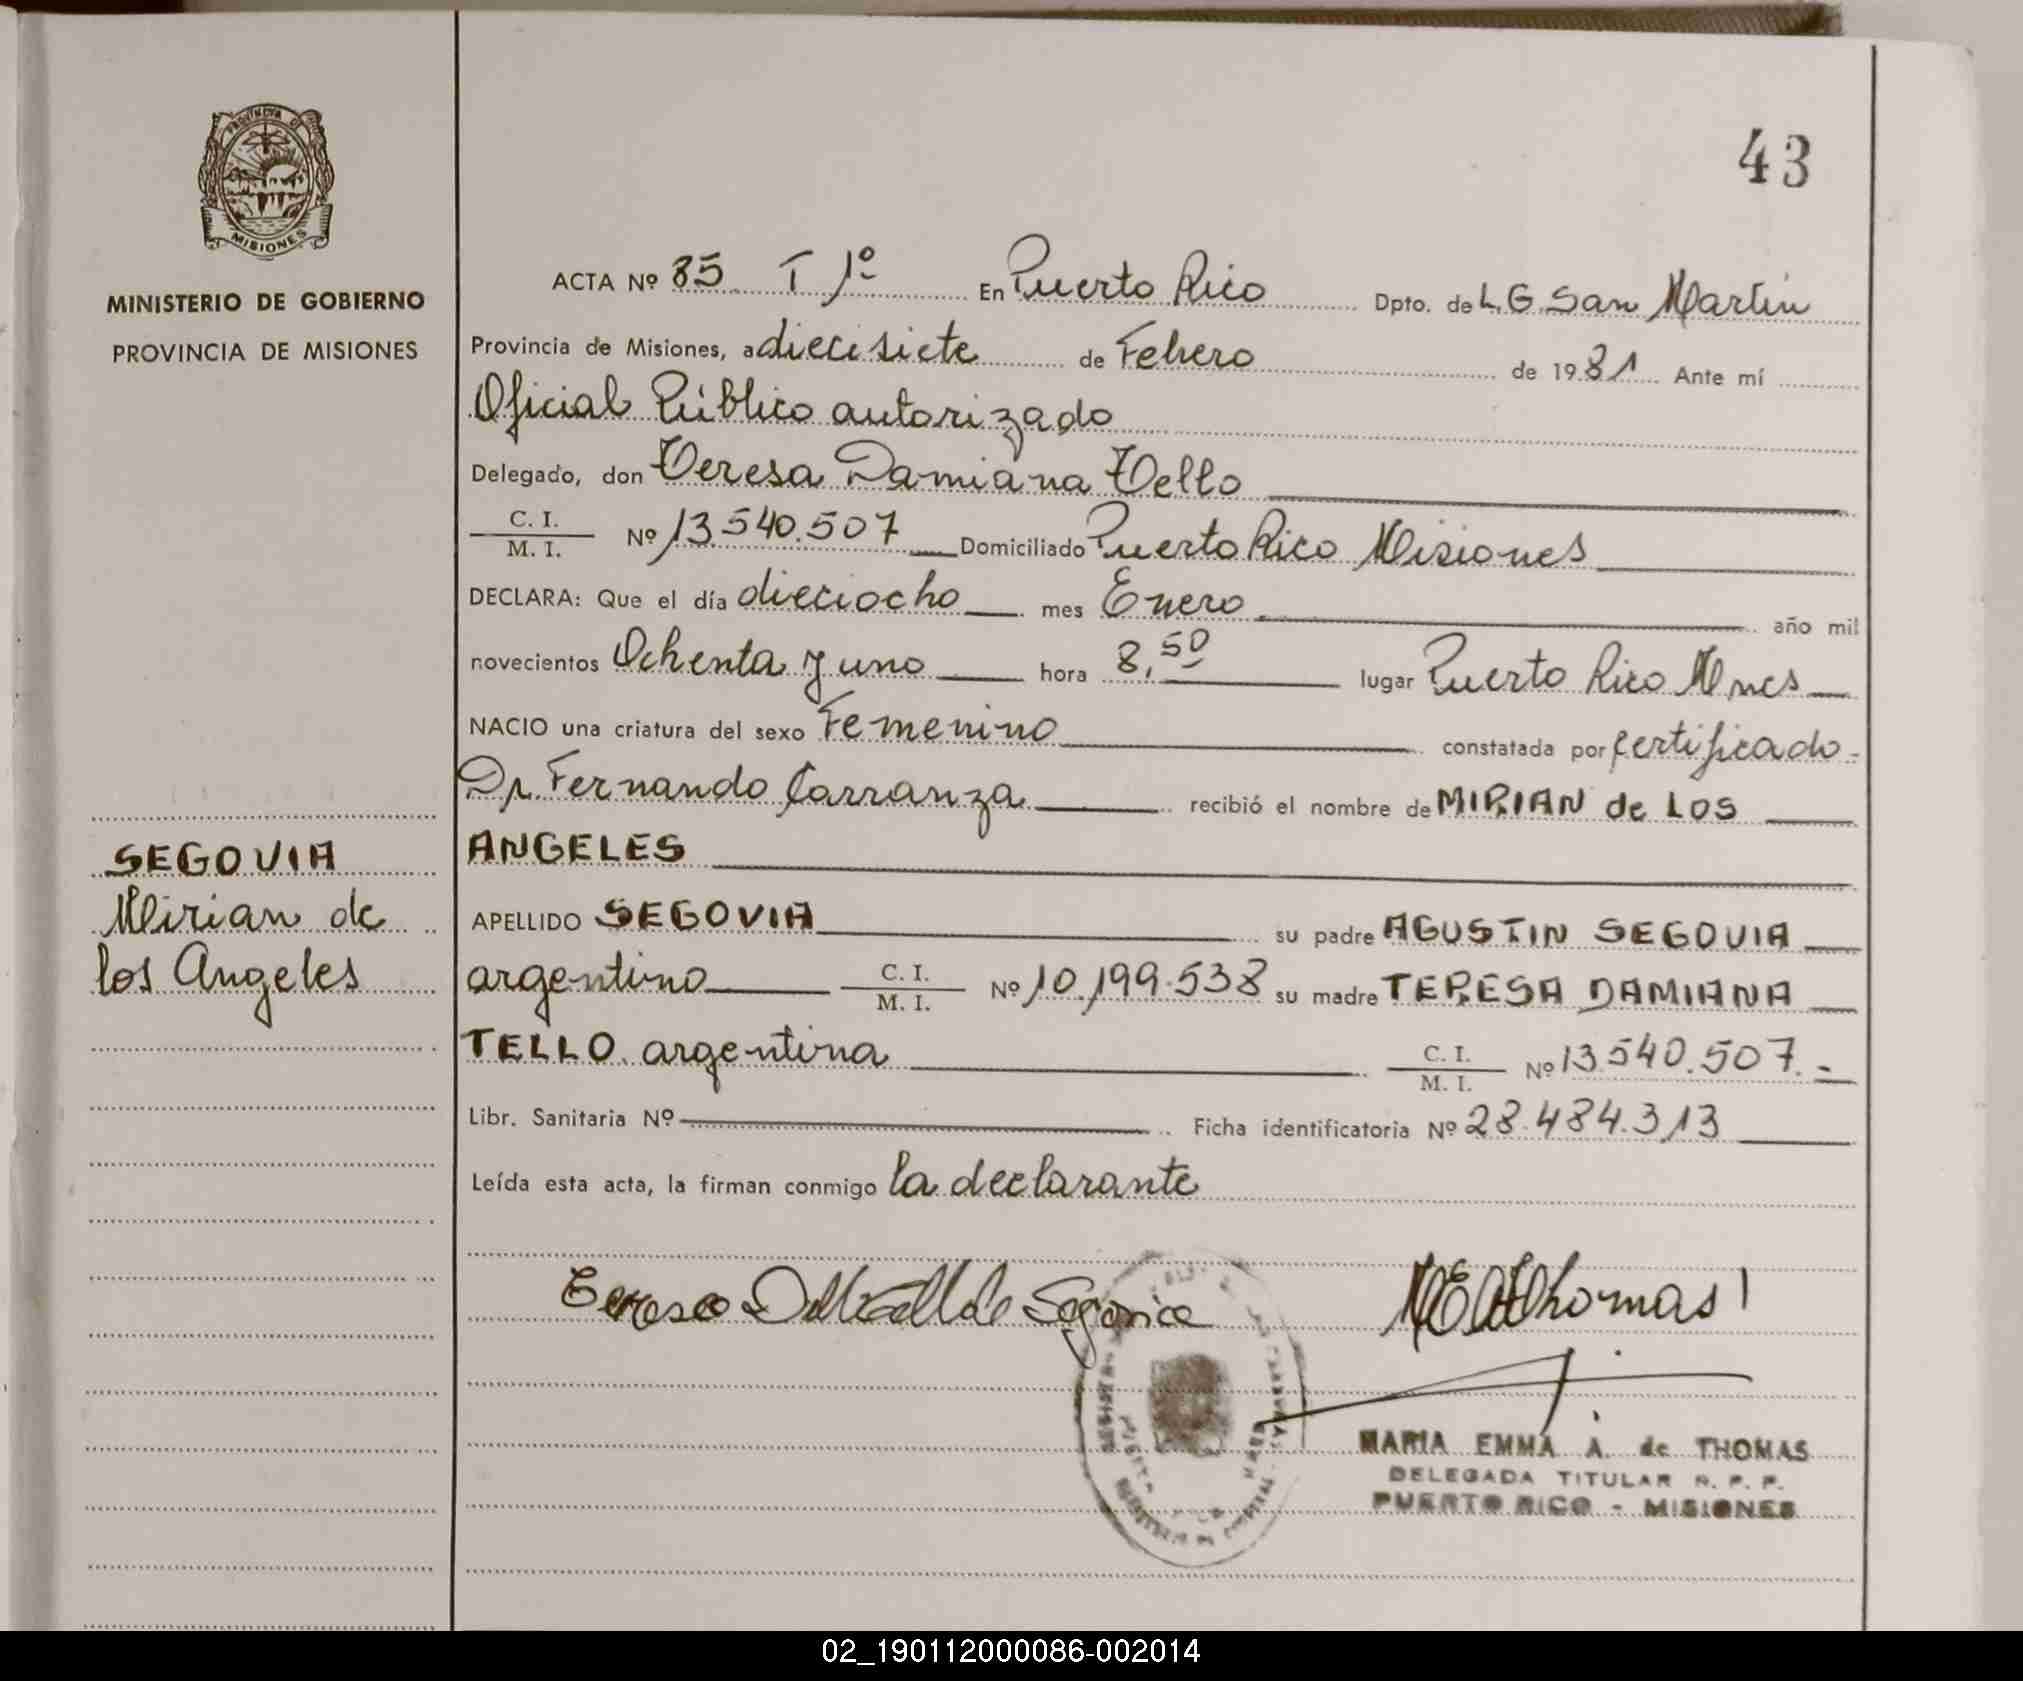 43
PROVINCIA DE
MISIONES
MINISTERIO DE GOBIERNO
PROVINCIA DE MISIONES
SEGOVIA
Mirian de
los Angeles
ACTA Nº 85 T 1º En Puerto Rico Dpto. de L.G. San Martin
Provincia de Misiones, a diecisiete de Febrero de 1981 Ante mí
Oficial Público autorizado
Delegado, don Teresa Damiana Tello
C. I. / M. I. Nº 13.540.507 Domiciliado Puerto Rico Misiones
DECLARA: Que el día dieciocho mes Enero año mil
novecientos Ochenta y uno hora 8,50 lugar Puerto Rico Mnes
NACIO una criatura del sexo Femenino constatada por certificado
Dr. Fernando Carranza recibió el nombre de MIRIAN de LOS
ANGELES
APELLIDO SEGOVIA su padre AGUSTIN SEGOVIA
argentino C. I. / M. I. Nº 10.199.538 su madre TERESA DAMIANA
TELLO argentina C. I. / M. I. Nº 13.540.507.-
Libr. Sanitaria Nº Ficha identificatoria Nº 28.484.313
Leída esta acta, la firman conmigo la declarante
MARIA EMMA A. de THOMAS
DELEGADA TITULAR R. P. P.
PUERTO RICO - MISIONES
02_190112000086-002014